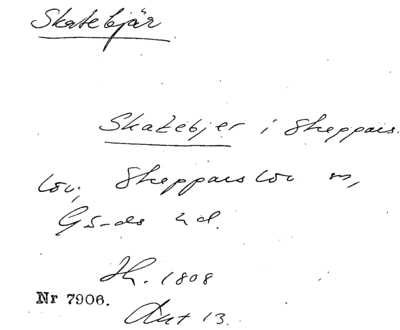 Skatebjär
Skatebjer i Skeppars-
löv, Skepparslöv sn,
Gärds hd.
Jh. 1808
Nr 7906.
Akt 13.